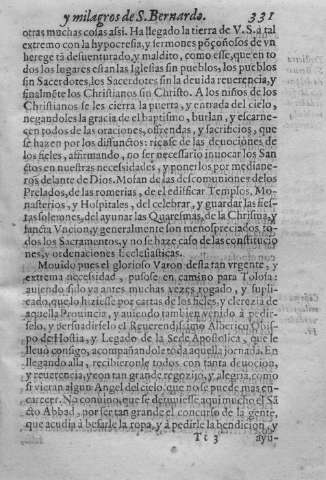 y milagros de S. Bernardo. 331
otras muchas cosas assi. Ha llegado la tierra de V.S. a tal
extremo con la hypocresia, y sermones põçoñosos de vn
herege tã desuenturado, y maldito, como esse, que en to
dos los lugares estan las Iglesias sin pueblos, los pueblos
sin Sacerdotes, los Sacerdotes sin la deuida reuerencia, y
finalmẽte los Christianos sin Christo. A los niños de los
Christianos se les cierra la puerta, y entrada del cielo,
negandoles la gracia de el baptismo, burlan, y escarne-
cen todos de las oraciones, ofrendas, y sacrificios, que
se hazen por los difunctos: riẽse de las deuociones de
los fieles, affirmando, no ser necessario inuocar los San
ctos en nuestras necessidades, y ponerlos por mediane-
ros delante de Dios. Mofan de las descomuniones de los
Prelados, de las romerias, de el edificar Templos, Mo-
nasterios, y Hospitales, del celebrar, y guardar las fies-
tas solennes, del ayunar las Quaresmas, de la Chrisma, y
sancta Vncion, y generalmente son menospreciados to-
dos los Sacramentos, y no se haze caso de las constitucio
nes, y ordenaciones Ecclesiasticas.
Mouido pues el glorioso Varon desta tan vrgente, y
extrema necessidad, pusose en camino para Tolosa:
auiendo sido ya antes muchas vezes rogado, y supli-
cado, que lo hiziesse por cartas de los fieles, y clerezia de
aquella Prouincia, y auiendo tambien venido à pedir-
selo, y persuadirselo el Reuerendissimo Alberico Obis-
po de Hostia, y Legado de la Sede Apostolica, que le
lleuò consigo, acompañandole toda aquella jornada. En
llegando alla, recibieronle todos con tanta deuocion,
y reuerencia, y con tan grande regozijo, y alegria, como
si vieran algun Angel del cielo, que no se puede mas en-
carecer. No conuino, que se detuuiesse aqui mucho el Sã
cto Abbad, por ser tan grande el concurso de la gente,
que acudia à besarle la ropa, y à pedirle la bendicion, y
Tt 3 ayu-